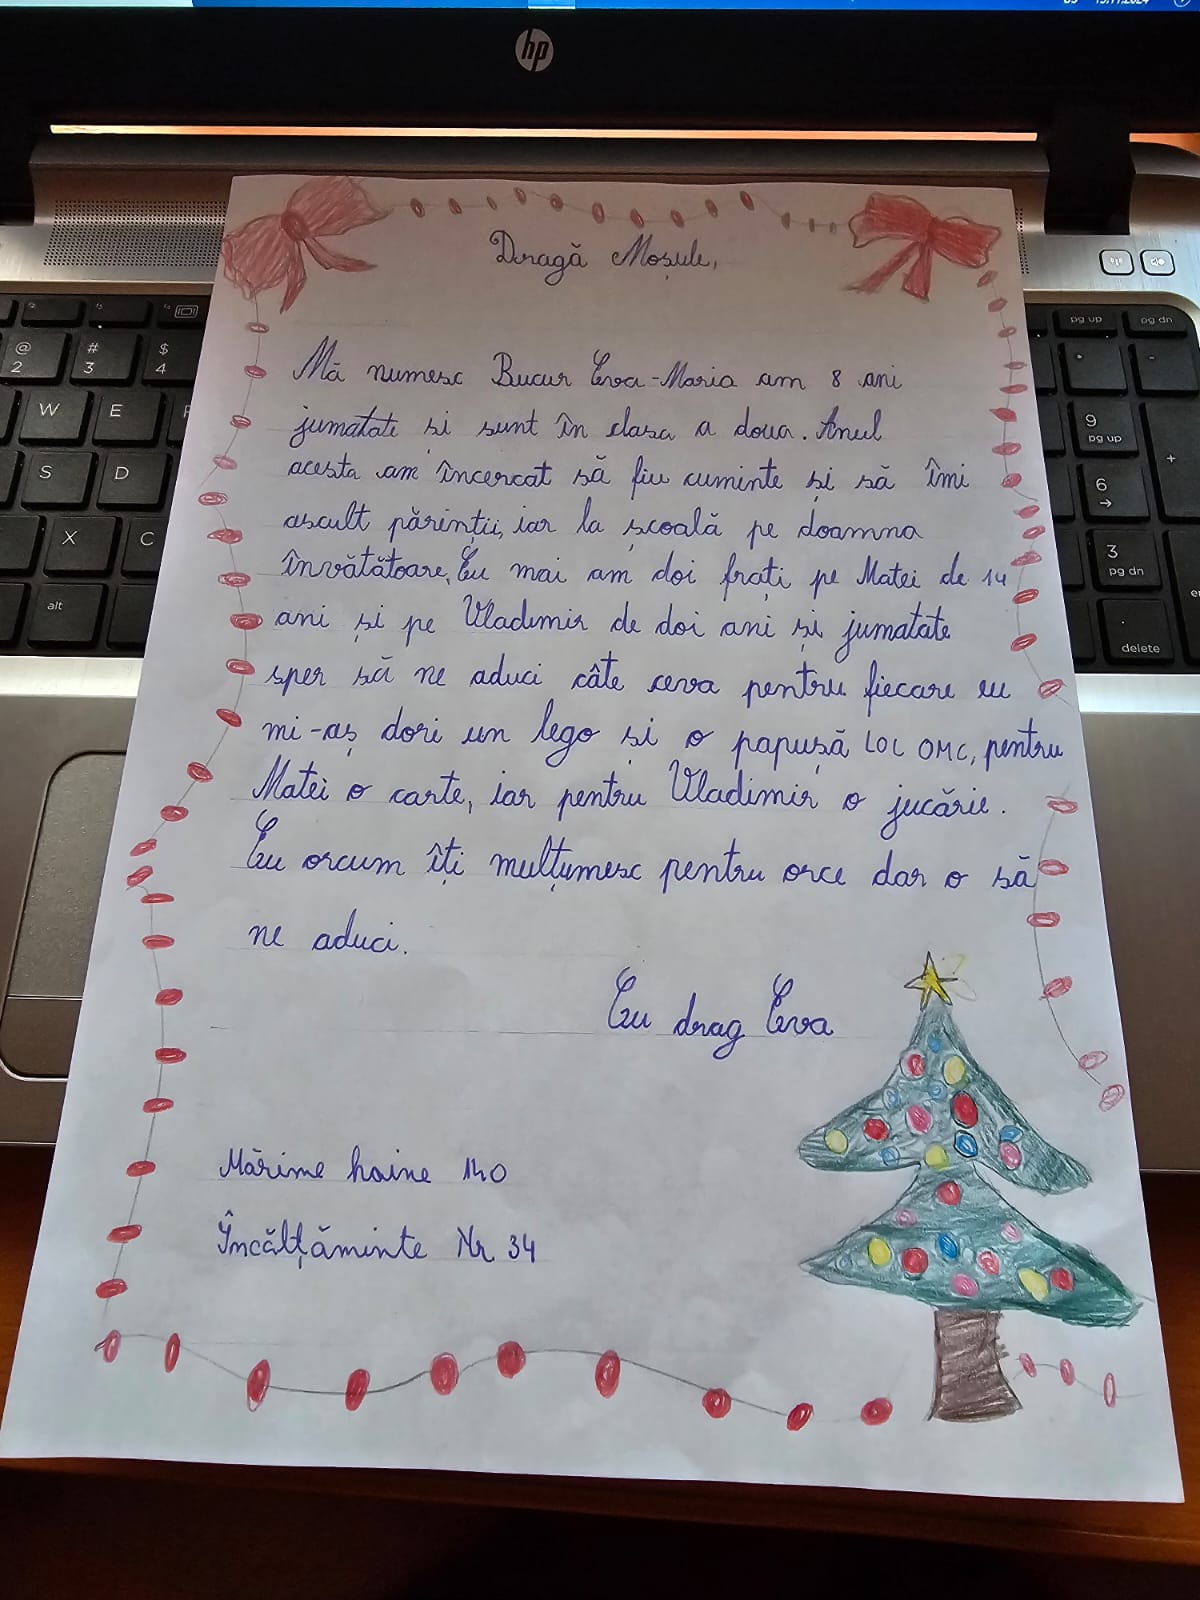 hp
Dragă Moșule,
Mă numesc Bucur Eva-Maria am 8 ani
jumatate și sunt în clasa a doua. Anul
acesta am încercat să fiu cuminte și să îmi
ascult părinții, iar la școală pe doamna
învătătoare. Eu mai am doi frați pe Matei de 14
ani și pe Vladimir de doi ani și jumatate
sper să ne aduci câte ceva pentru fiecare eu
mi-aș dori un lego și o papușă LOL OMG, pentru
Matei o carte, iar pentru Vladimir o jucărie.
Eu orcum îți mulțumesc pentru orce dar o să
ne aduci.
Cu drag Eva
Mărime haine 140
Încălțăminte Nr 34
@ 2
# 3
$ 4
W E
S D
X C
alt
pg up pg dn
* -
9 pg up
+
6
3 pg dn
. delete